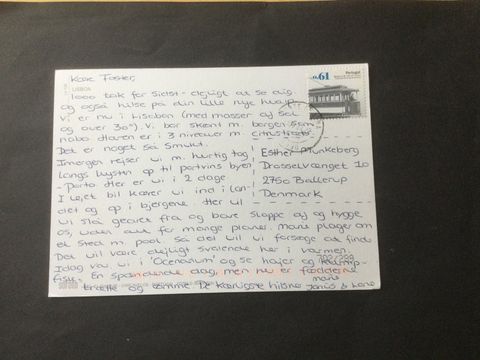 LISBOA
Kære Faster,
1000 tak for sidst - dejligt at se dig
og også hilse på din lille nye hvalp
Vi er nu i Lissabon (med masser af sol
og over 30°). Vi bor skønt m. borgen som
nabo. Haven er i 3 niveauer m. citrustræer
Det er noget så smukt.
Imorgen rejser vi m. hurtig tog
langs kysten op til portvins byen
- Porto. Her er vi i 2 dage
I lejet bil kører vi ind i lan-
det og op i bjergene. Her vil
vi slå gearet fra og bare slappe af og hygge
os, uden for mange planer. Marie plager om
et sted m. pool. Så det vil vi forsøge at finde
Det vil være dejligt svalende her i varmen.
Idag var vi i "Oceanium" og se hajer og
fisk. En spændende dag, men nu er fødderne
trætte og ømme. De kærligste hilsner
Marie
Janus & Lone
€0,61
Portugal
Esther Munkeberg
Drosselvænget 10
2750 Ballerup
Denmark
702/299